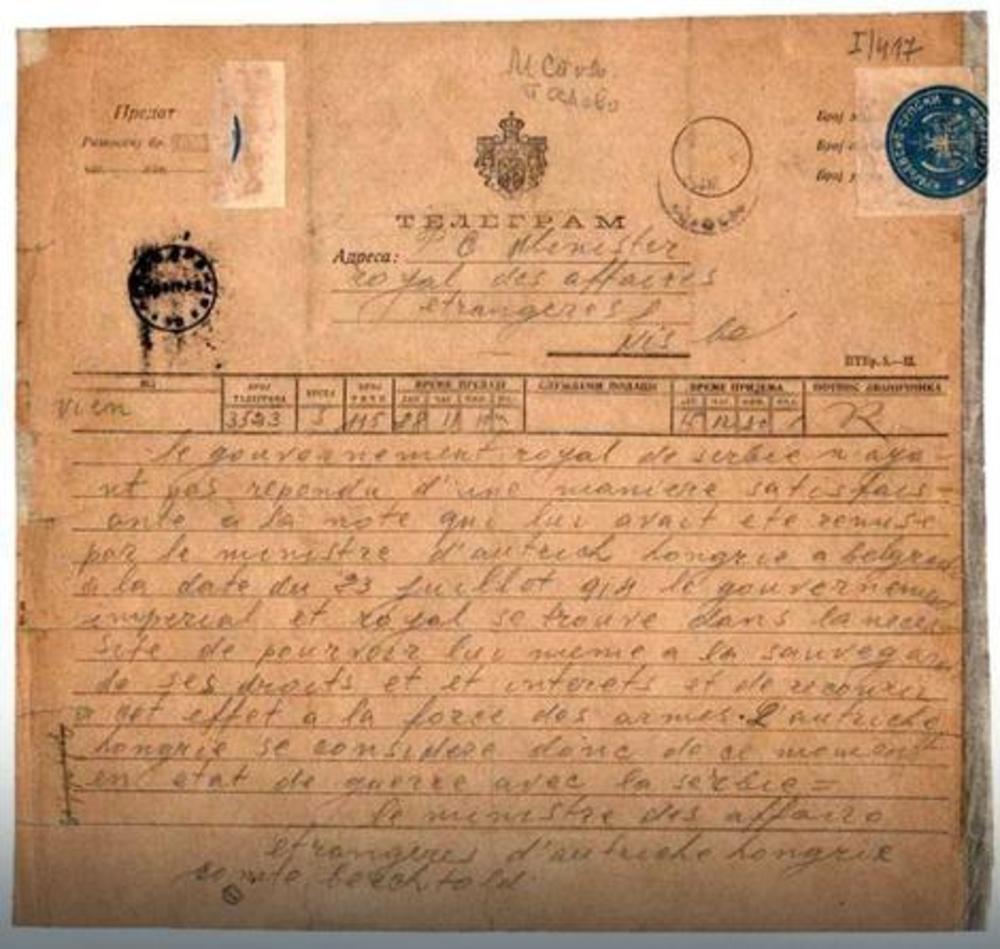 I/417
Предат
ТЕЛЕГРАМ
Адреса:
Minister
royal des affaires
etrangeres
Nis
ВРЕМЕ ПРЕДАЈЕ
СЛУЖБЕНИ ПОДАЦИ
ВРЕМЕ ПРИЈЕМА
ПОТПИС ЗВАНИЧНИКА
Vien
3523 5 115 28 11
R
le gouvernement royal de serbie n aya
nt pas rependu d'une maniere satisfais
ante a la note qui lui avait ete remise
par le ministre d'autrich hongrie a belgrad
a la date du 23 juillot 914 le gouvernement
imperial et royal se trouve dans la neces
site de pourvoir lui meme a la sauvegar
de ses droits et et interets et de recourir
a cet effet a la force des armes. L'autriche
hongrie se considere donc de ce moment
en etat de guerre avec la serbie =
le ministre des affaire
etrangeres d'autriche hongrie
comte berchtold